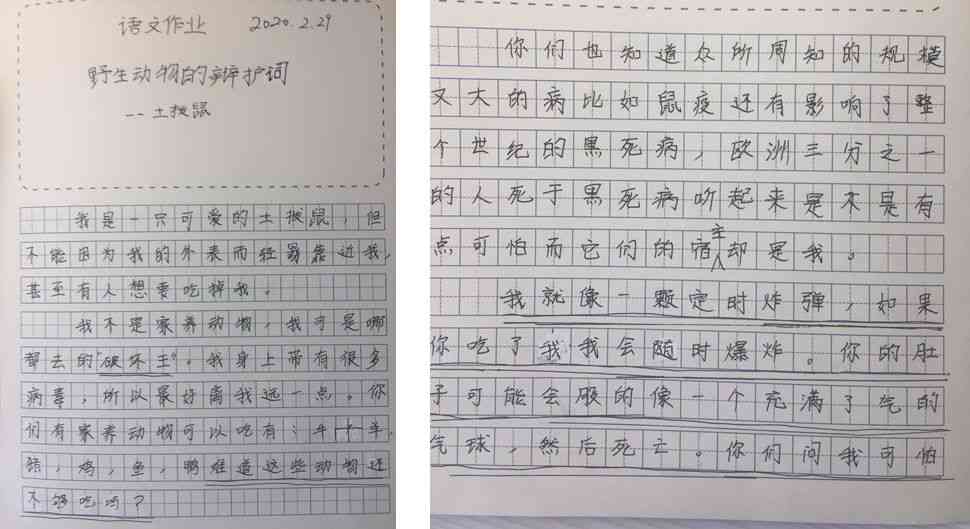 语文作业 2020.2.29
野生动物的辩护词
--土拨鼠
我是一只可爱的土拨鼠,但
不能因为我的外表而轻易靠近我,
甚至有人想要吃掉我。
我不是家养动物,我可是哪
都去的"破坏王"。我身上带有很多
病毒,所以最好离我远一点。你
们有家养动物可以吃有:牛、羊,
猪,鸡,鱼,鸭难道这些动物还
不够吃吗?
你们也知道众所周知的规模
又大的病比如鼠疫还有影响了整
个世纪的黑死病,欧洲三分之一
的人死于黑死病听起来是不是有
点可怕而它们的宿主却是我。
我就像一颗定时炸弹,如果
你吃了我我会随时爆炸。你的肚
子可能会胶的像一个充满了气的
气球,然后死亡。你们问我可怕